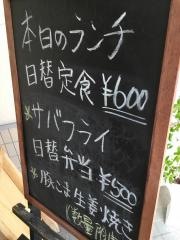 本日のランチ
日替定食 ¥600
サバフライ
日替弁当 ¥500
豚こま生姜焼き
(数量限定)